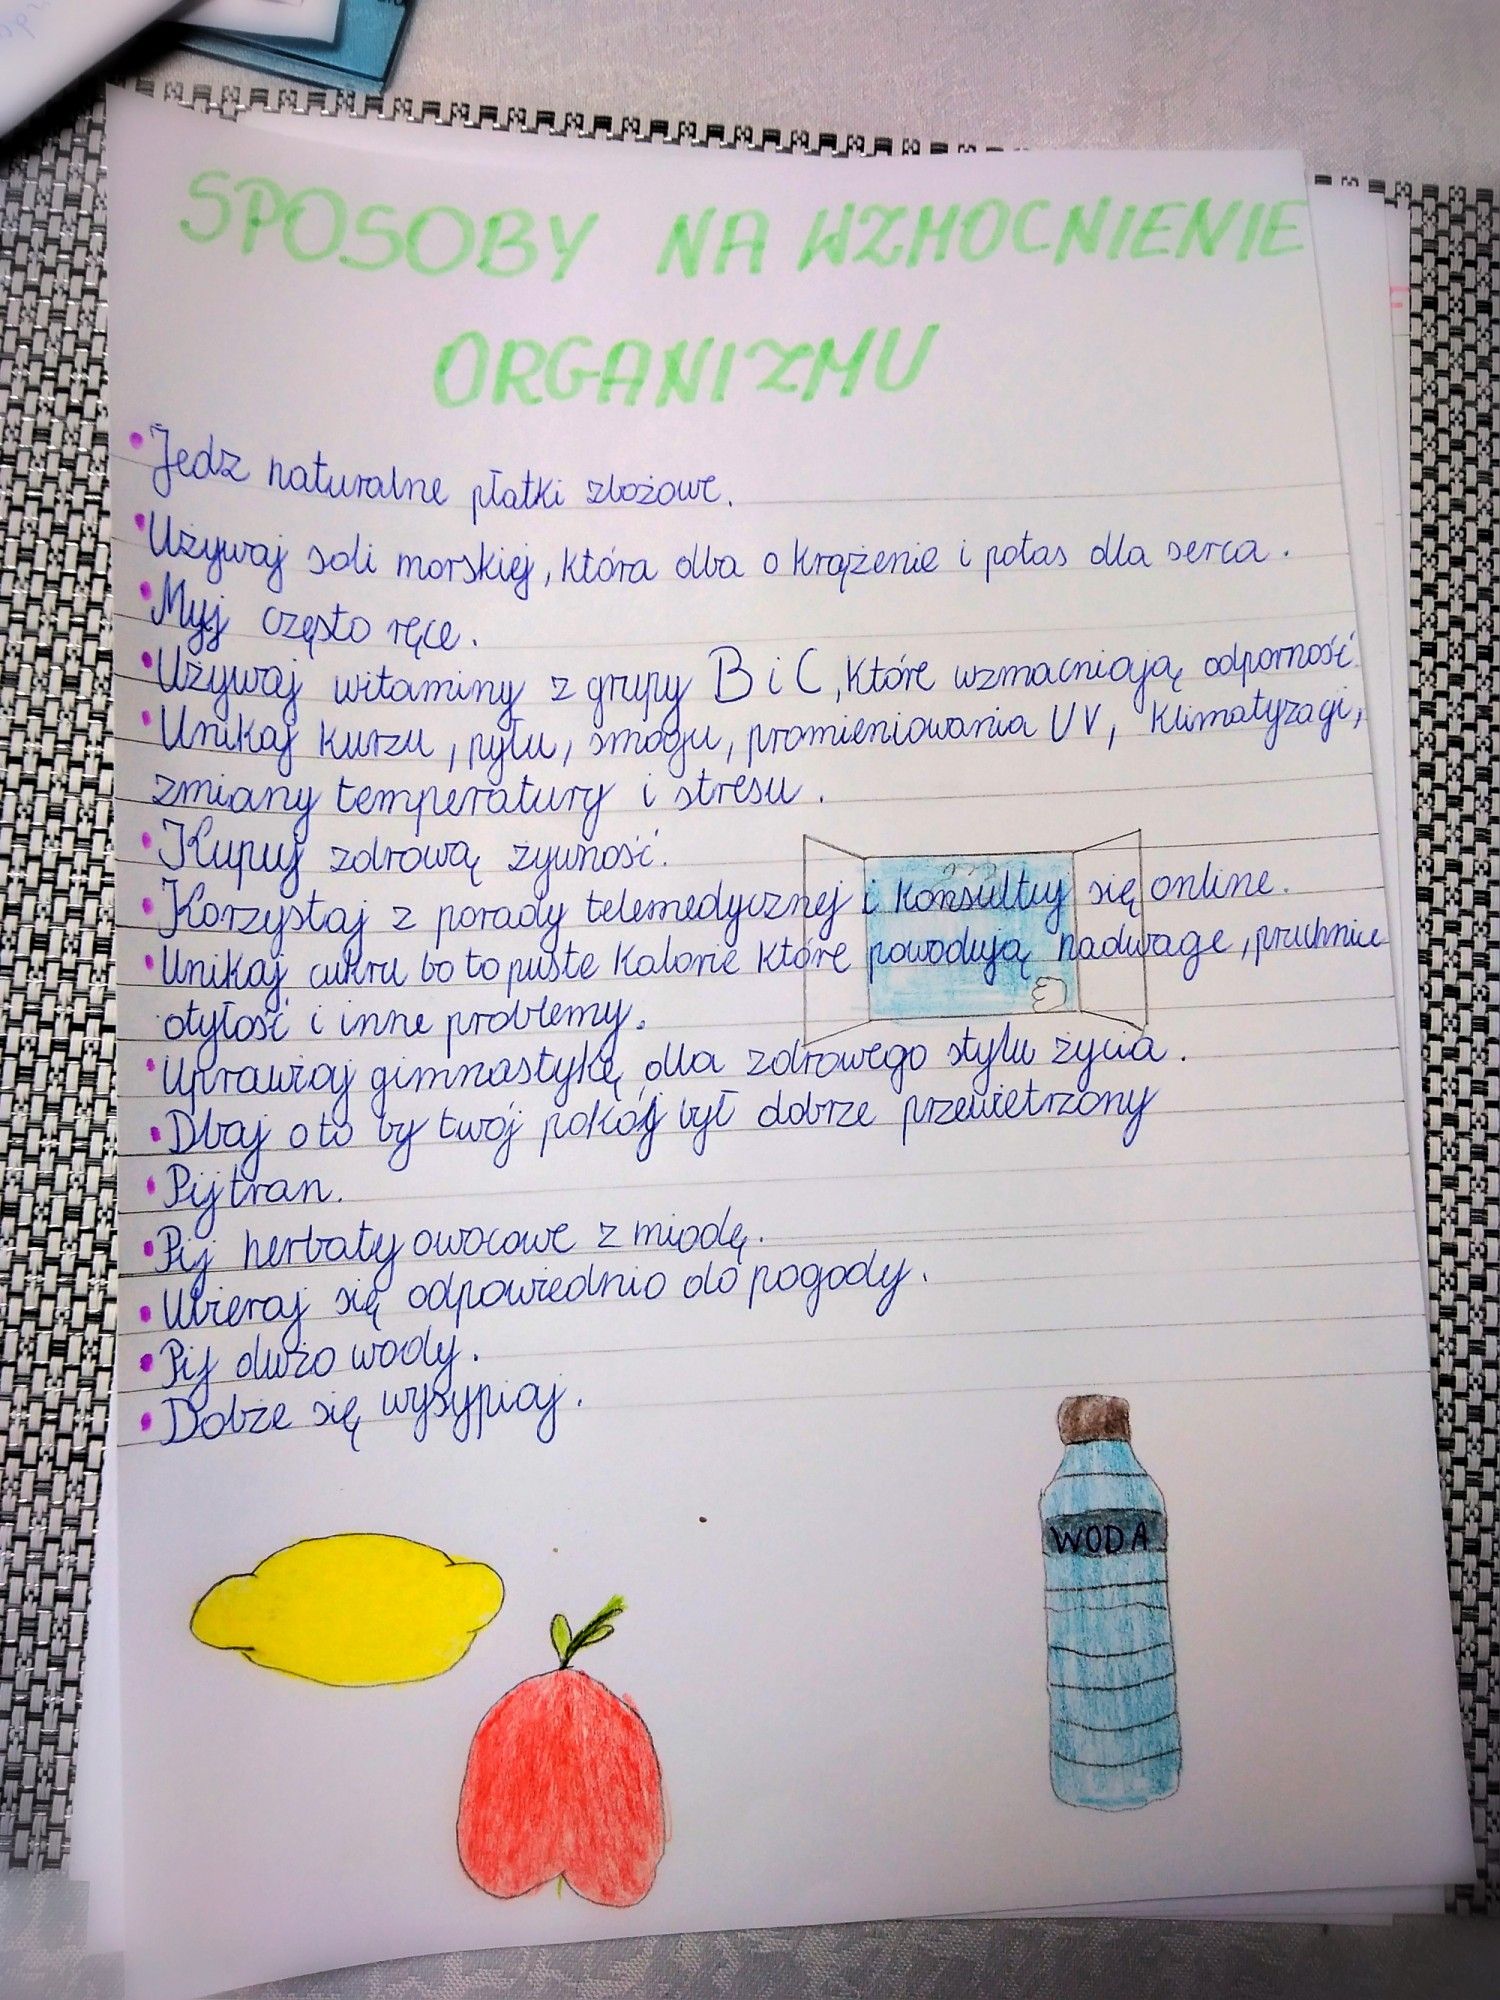 SPOSOBY NA WZMOCNIENIE
ORGANIZMU
• Jedz naturalne płatki zbożowe.
• Używaj soli morskiej, która dba o krążenie i potas dla serca.
• Myj często ręce.
• Używaj witaminy z grupy B i C, które wzmacniają odporność.
• Unikaj kurzu, pyłu, smogu, promieniowania UV, klimatyzacji,
zmiany temperatury i stresu.
• Kupuj zdrową żywność.
• Korzystaj z porady telemedycznej i konsultuj się online.
• Unikaj cukru bo to puste kalorie które powodują nadwage, pruchnice
otyłość i inne problemy.
• Uprawiaj gimnastykę dla zdrowego stylu życia.
• Dbaj o to by twój pokój był dobrze przewietrzony
• Pij tran.
• Pij herbaty owocowe z miodę.
• Ubieraj się odpowiednio do pogody.
• Pij dużo wody.
• Dobże się wysypiaj.
WODA